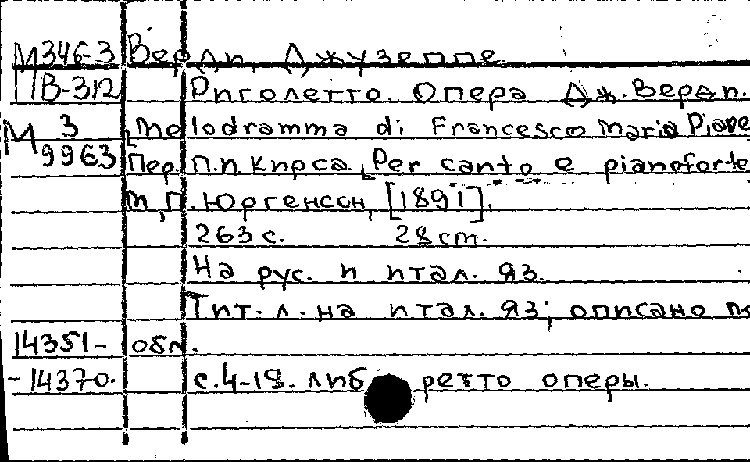 М346-3 Верди, Джузеппе
В-312 Риголетто. Опера Дж. Верди.
М 3 [Melodramma di Francesco Maria Piave
9963 Пер. П.П. Кирса. Per canto e pianoforte
М., П. Юргенсон, [1891].
263 с. 28 cm.
На рус. и итал. яз.
Тит. л. на итал. яз; описано по
14351- обл.
-14370. с. 4-18. либретто оперы.